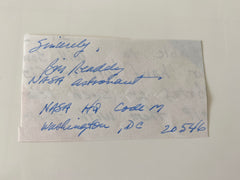 Sincerely,
Bill Readdy
NASA astronaut
NASA HQ Code M
Washington, DC 20546